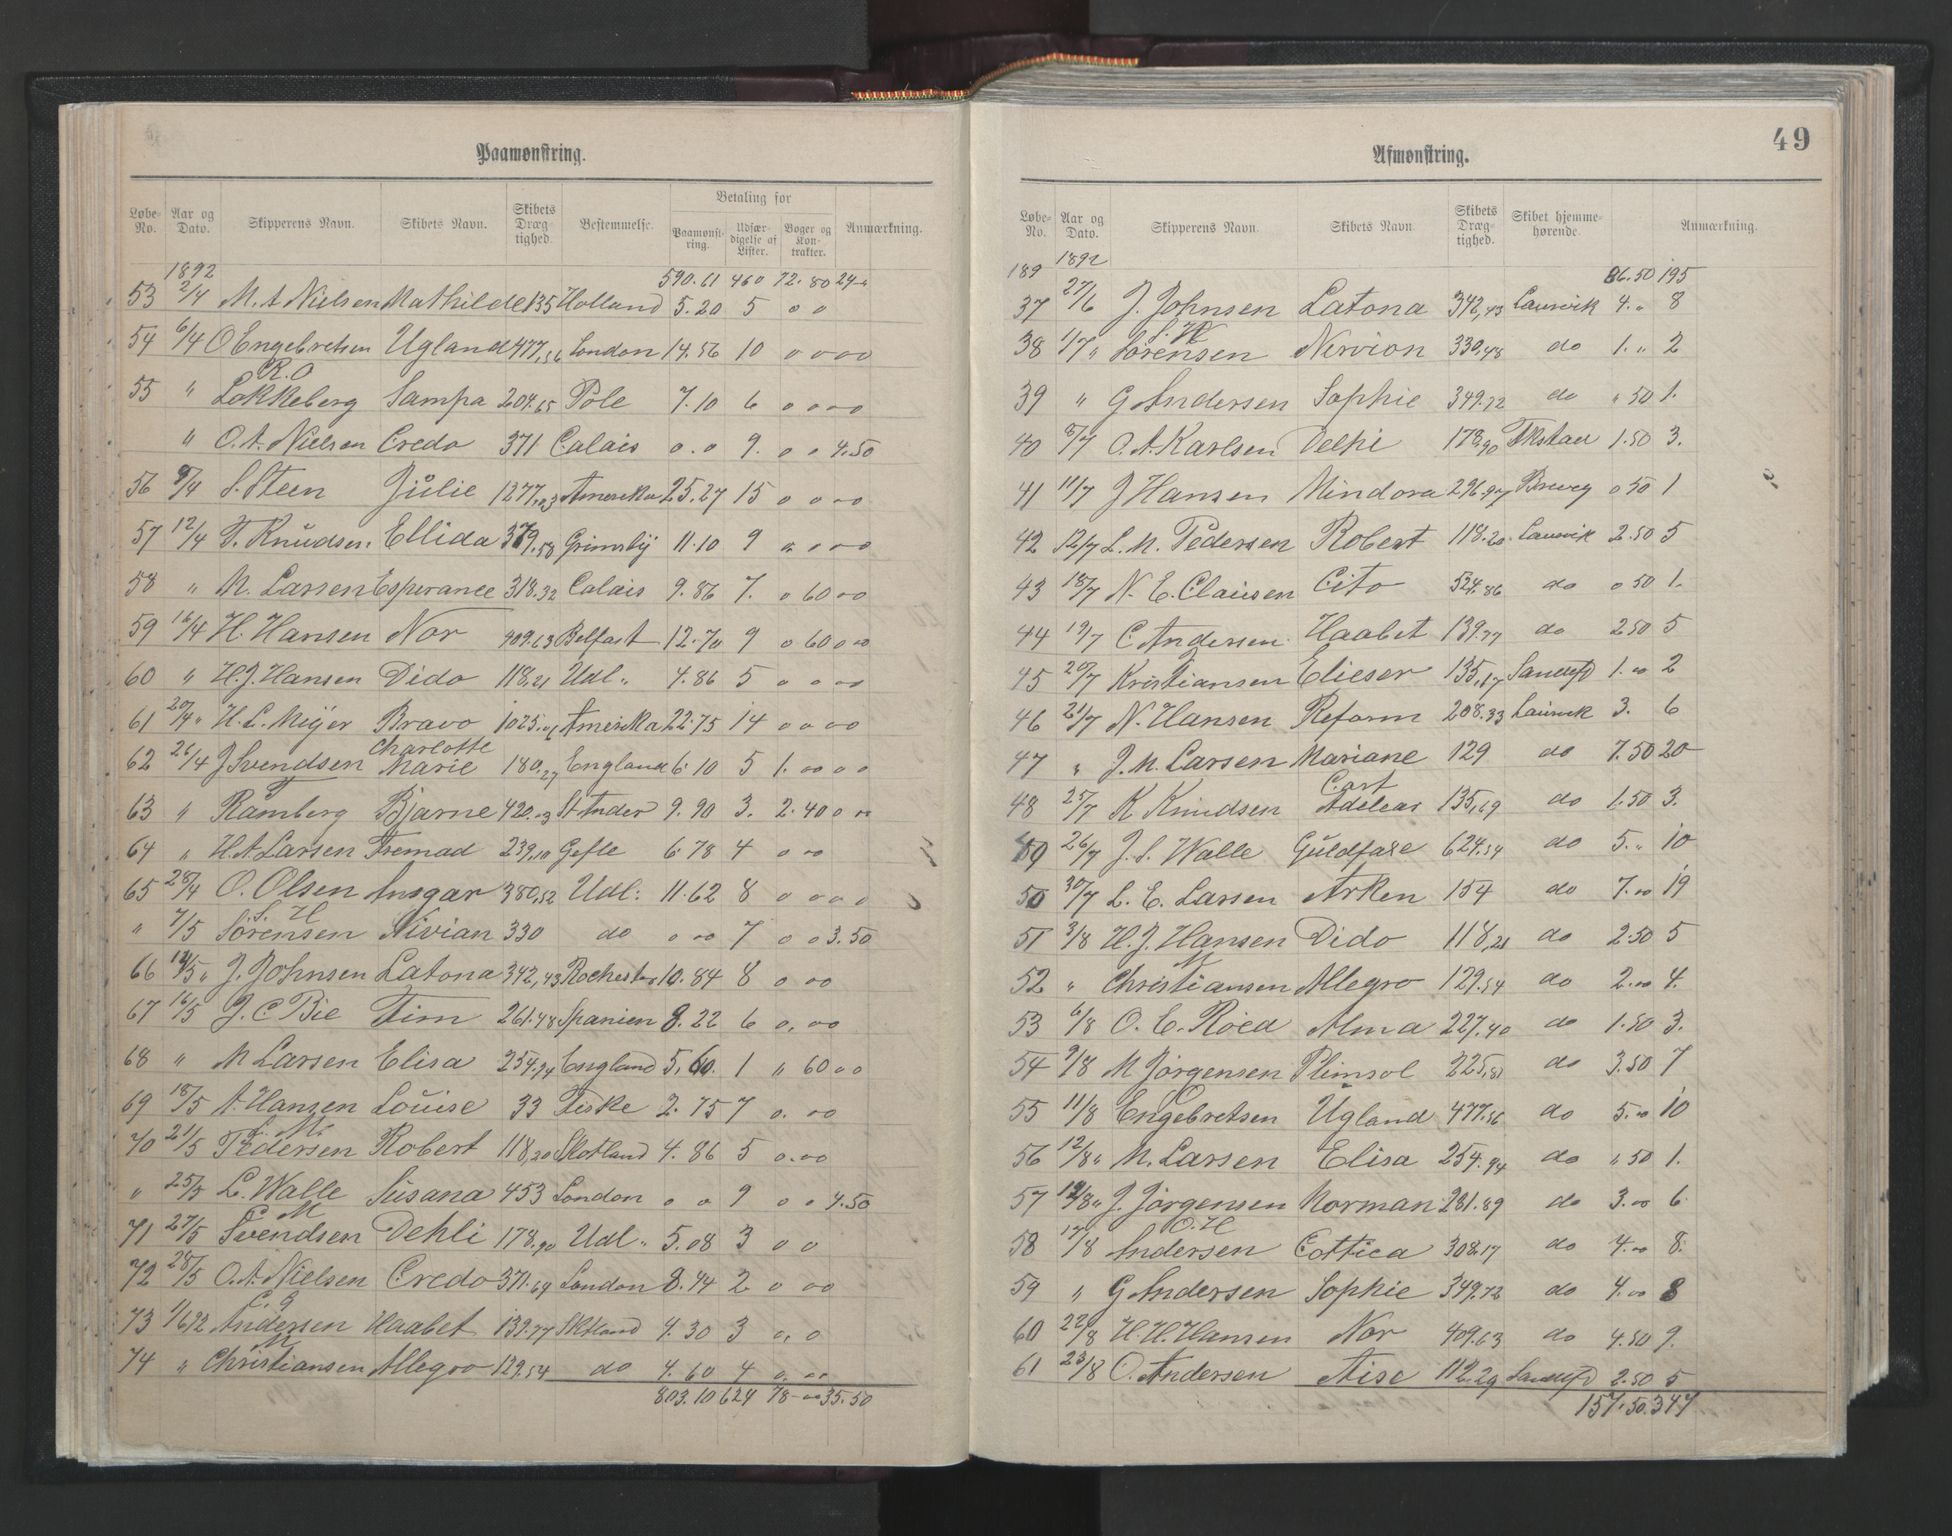 Paamønstring.
Løbe-No. Aar og Dato. Skipperens Navn. Skibets Navn. Skibets Dræg-tighed. Bestemmelse. Betaling for Paamønst-ring. Udfær-digelse af Lister. Bøger og Kon-trakter. Anmærkning.
1892 590.61 460 72.80 24
53 2/4 M. A Nielsen Mathilde 135 Holland 5.20 5 o o
54 6/4 O Engebretsen Ugland 477,56 London 14.56 10 o o o o
55 " R. O Lökkeberg Sampa 204.65 Pole 7.10 6 o o o o
" O. A. Nielsen Credo 371 Calais o . o 9. o o 4.50
56 8/4 S. Steen Julie 1277,03 Amerika 25.27 15 o o o o
57 12/4 T. Knudsen Ellida 379.58 Grimsby 11.10 9 o o o o
58 " M. Larsen Esperance 318.32 Calais 9.86 7. o 60 o o
59 16/4 H. Hansen Nor 409.63 Belfast 12.70 9 o 60 o o o
60 " H. J. Hansen Dido 118,21 Udl " 4.86 5 o o o o
61 20/4 " H. L. Meÿer Bravo 1025.06 Amerika 22.75 14 o o o o
62 26/4 J Svendsen Charlotte Marie 180,27 England 6.10 5 1. oo o o
63 " T Ramberg Bjarne 420.03 St Ander 9.90 3. 2.40 o oo
64 " H. A Larsen Fremad 239,10 Gefle 6.78 4 o oo
65 28/4 O. Olsen Ansgar 380,52 Udl: 11.62 8 o o o o
" 7/5 S. H Sörensen Nivian 330 do o oo 7 o o 3.50
66 12/5 " J. Johnsen Latona 342,43 Rochester 10.84 8 o oo
67 16/5 J. C Bie Tim 261.48 Spanien 8.22 6 o. oo
68 " M Larsen Elisa 254.94 England 5,60. 1 " 60 o o
69 18/5 A. Hansen Louise 33 Fiske 2.75 7 o. oo
70 21/5 L. M. Pedersen Robert 118,20 Skotland 4.86 5 o.oo
" 25/5 L. Walle Susana 453 London o o 9 o o 4.50
71 27/5 C M Svendsen Dehli 178.90 Udl " 5.08 3 o o
72 28/5 O. A. Nielsen Credo 371.69 London 8.94 2 o oo
73 1/6 92 C. G Andersen Haabet 139.77 Sktland 4.30 3 o, o
74 " M Christiansen Allegro 129.54 do 4.60 4 o. oo
803.10 624 78 oo 35.50
49
Afmønstring.
Løbe-No. Aar og Dato. Skipperens Navn. Skibets Navn Skibets Dræg-tighed. Skibet hjemme-hørende. Anmærkning.
189 1892 86.50 195
37 27/6 J. Johnsen Latona 342,43 Laurvik 4. " 8
38 11/7 " S. H Sörensen Nervion 330,48 do 1. " 2
39 " G Andersen Sophie 349.72 do " 50 1.
40 8/7 O. A Karlsen Delhi 178,90 1.50 3.
41 11/7 J Hansen Mindora 296.97 Breveg o 50 1
42 12/7 L. M. Pedersen Robert 118.20 Laurvik 2.50 5
43 18/7 N. E. Clausen Cito 524.86 do o 50 1.
44 19/7 C. Andersen Haabet 139.77 do 2.50 5
45 20/7 Kristiansen Elieser 135,17 Sandefjd 1. oo 2
46 21/7 N. Hansen Reform 208.33 Laurvik 3. 6
47 " J. M. Larsen Mariane 129 do 7.50 20
48 25/7 K Knudsen Carl Adelear 135,69 do 1.50 3.
49 26/7 J. S. Walle Guldfaxe 624.54 do 5. " 10
50 30/7 L. E. Larsen Arken 154 do 7. oo 19
51 3/8 H. J. Hansen Dido 118,21 do 2.50 5
52 " M Christiansen Allegro 129.54 do 2. oo 4.
53 6/8 O. C. Röed Alma 227.40 do 1.50 3.
54 9/8 M Jörgensen Plimsol 225,81 do 3.50 7
55 11/8 O Engebretsen Ugland 477.56 do 5. oo 10
56 12/8 " M. Larsen Elisa 254.94 do " 50 1.
57 12/8 " J. Jörgensen Norman 281.89 do 3. oo 6
58 17/8 O. H Andersen Cottica 308.17 do 4. oo 8.
59 " G Andersen Sophie 349.72 do 4. oo 8
60 22/8 H. H. Hansen Nor 409.63 do 4.50 9.
61 23/8 O. Andersen Aise 112.29 Sandefjd 2.50 5
157.50. 347